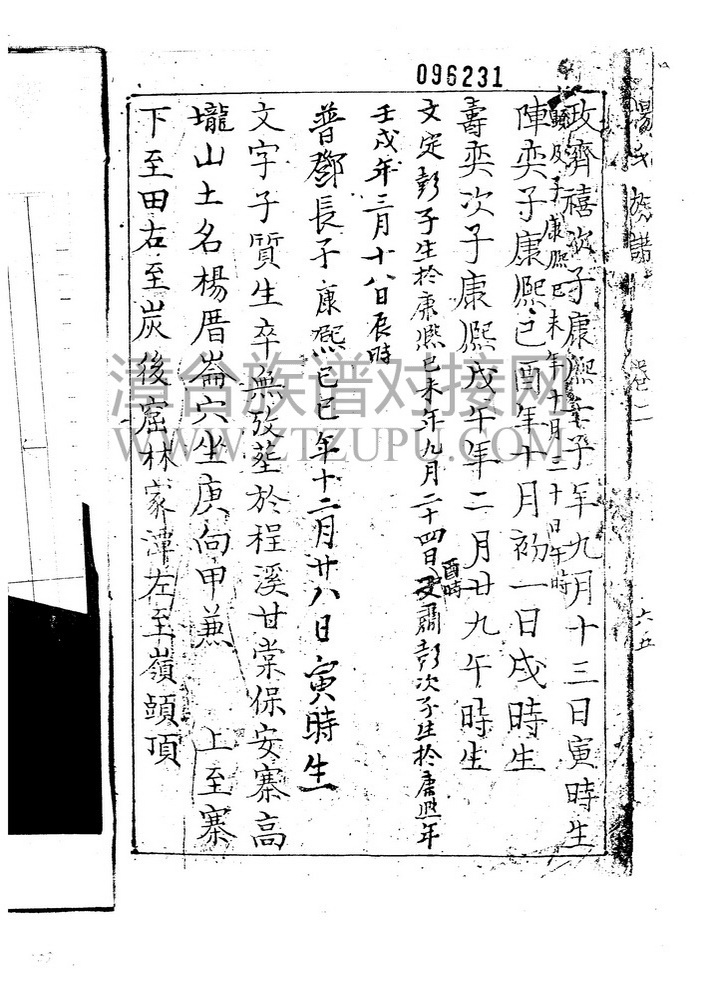 096231
楊氏族譜 卷二 六五
政齊禧次子康熙壬子年九月十三日寅時生
子康熙己未年十月三十日午時
陣奕子康熙己酉年十月初一日戌時生
壽奕次子康熙戊午年二月廿九午時生
文定彭子生於康熙己未年九月二十四日酉時 文爵彭次子生於康熙年
壬戌年三月十八日辰時
普鄧長子康熙己巳年十二月廿八日寅時生
文字子質生卒無攷塟於程溪甘棠保安寨高
壠山土名楊厝崙穴坐庚向甲兼 上至寨
下至田右至炭後窟林家潭左至嶺頭頂
漳台族谱对接网
WWW.ZTZUPU.COM